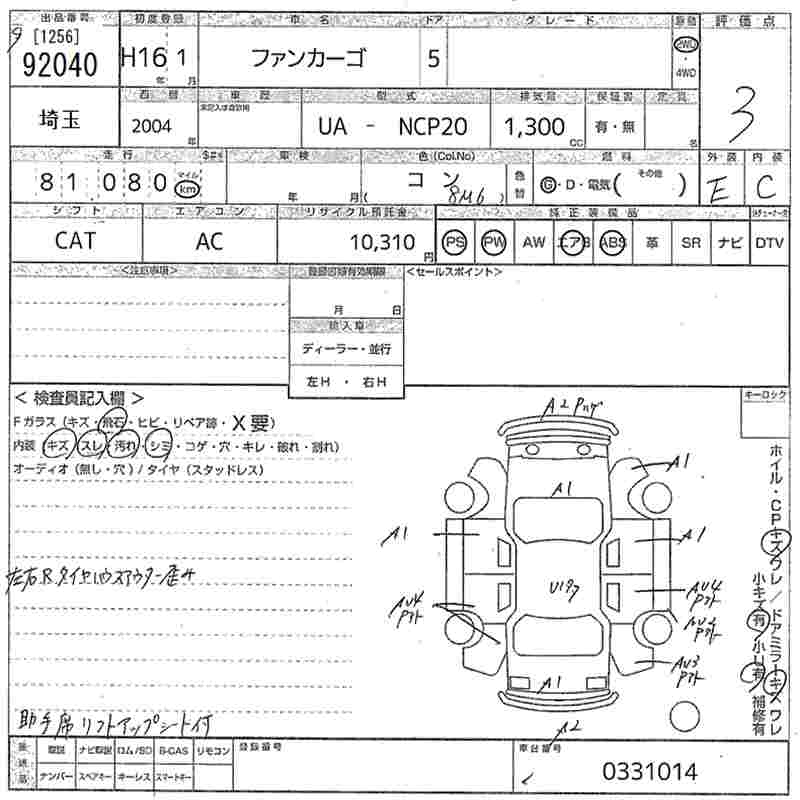 出品番号 初度登録 車名 ドア グレード 駆動 評価点
9 [1256]
92040 H16 1 ファンカーゴ 5 2WD ・ 4WD 3
年 月
西暦 車歴 型式 排気量 保証書 定員
未記入は自家用
埼玉 2004 年 UA - NCP20 1,300 CC 有・無 名
走行 車検 色(Col.No) 燃料 外装 内装
81 080 マイル km 年 月 コン ( 8M6 ) 色替 G・D・電気( その他 ) E C
シフト エアコン リサイクル預託金 純正装備品
CAT AC 10,310 円 PS PW AW エアB ABS 革 SR ナビ DTV
<注意事項> 登録区域有効期限 <セールスポイント>
月 日
輸入車
ディーラー・並行
左H ・ 右H
< 検査員記入欄 > キーロック
Fガラス(キズ・飛石・ヒビ・リペア跡・X要)
内装(キズ・スレ・汚れ・シミ・コゲ・穴・キレ・破れ・割れ)
オーディオ(無し・穴)/タイヤ(スタッドレス)
A2
A1
A1
A1 A1
AU4
AU4
AU3
A1
A2
ホイル・CPキズワレ/ドアミラーキズワレ
小キズ有 小U有 補修有
助手席リフトアップシート付
取説 ナビ取説 ロム/SD B-CAS リモコン 登録番号 車台番号
ナンバー スペアキー キーレス スマートキー 0331014